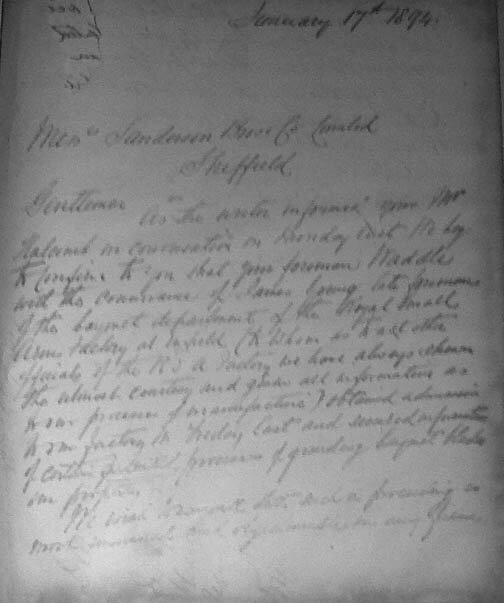 January 17th 1894.
Messrs Sanderson Bros & Co Limited
Sheffield.
Gentlemen As the writer informed your Mr
in conversation on Monday last We beg
to confirm to you that your foreman Waddle
with the connivance of James Young late foreman
of the bayonet department of the Royal Small
Arms Factory at Enfield (to whom as to all other
officials of the R S A Factory we have always shown
the utmost courtesy and given all information as
to our processes of manufacture) obtained admission
to our factory on Friday last and secured information
of certain processes of grinding bayonet blades
our property.
We such a proceeding is
most and